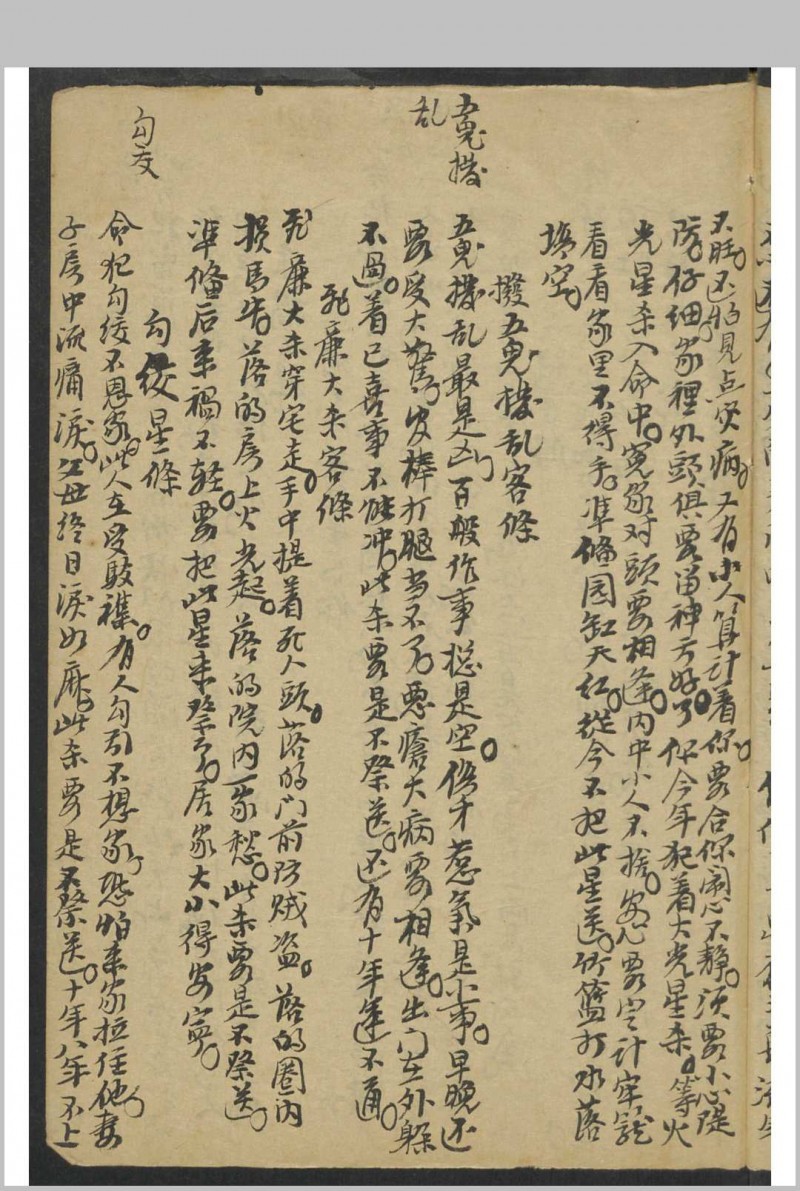 不旺。还怕見点灾病。又有小人算計看你。要合你闹心不静。须要小心隄
防。仔细。家裡外頭俱要留神方好了你今年犯着大光星杀。等火
光星杀入命中。冤家对頭要相逢。内中小人不捨。安心要定計牢籠
看看家里不得手。準俻园缸天红。從今不把此星送。竹籃打水落
塲空。
撥五鬼擾乱客條
五鬼擾乱最是凶百般作事摠是空。傷才惹氣是小事。早晚还
要受大驚。皮棒打腿尚不了惡瘡大病要相逢。出门在外躲
不過。着已喜事不能冲。此杀要是不祭送。还有十年運不通。
死廉大杀客條
死廉大杀穿宅走。手中提着死人頭。落的门前防賊盗。落的圈内
损馬牛。落的房上火光起。落的院内一家愁。此杀要是不祭送。
準俻后来禍不轻。要把此星来祭了。居家大小得安寧。
勾绞星一條
命犯勾绞不恩家。此人在受駁襍。有人勾引不想家。恐怕来家拉住他。妻
子房中流痛淚。父母终日淚如麻。此杀要是不祭送。十年八年不上
五鬼擾
乱
勾友